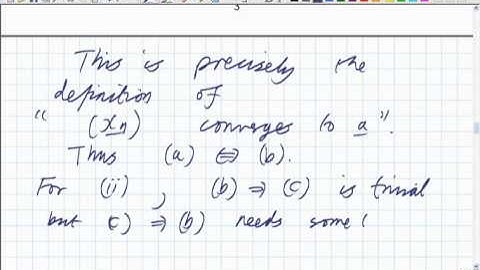 3
This is precisely the
definition of
"(xn) converges to a".
Thus (a) ⇔ (b).
For (ii), (b) ⇒ (c) is trivial
but c) ⇒ (b) needs some (